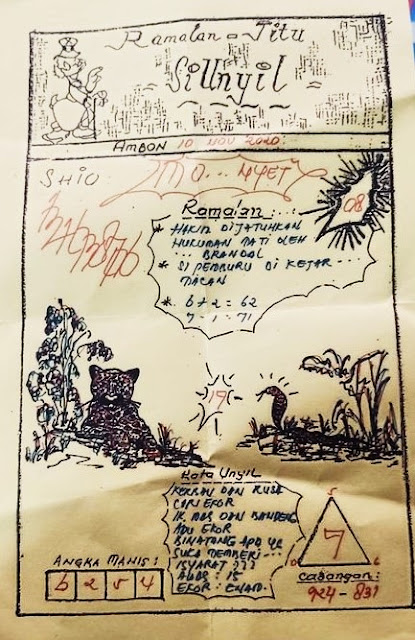 Ramalan = Jitu
Si Unyil
AMBON 10 NOV 2020
SHIO
MO... NYET
08
Ramalan :
* HAKIM DIJATUHKAN
HUKUMAN MATI OLEH
... BRANDAL
* SI PEMBURU DI KEJAR ...
MACAN
* 6 + 2 = 62
7 - 1 : 71
19
1
Kata Unyil
KERBAU DAN RUSA
CARI EKOR
IKAN MAS DAN BANDENG
ADU EKOR
BINATANG APA YG
SUKA MEMBERI ...
ISYARAT ???
: 15
EKOR : ENAM
ANGKA MANIS :
6 2 5 4
5
7
0 6
Cabangan :
924 - 831